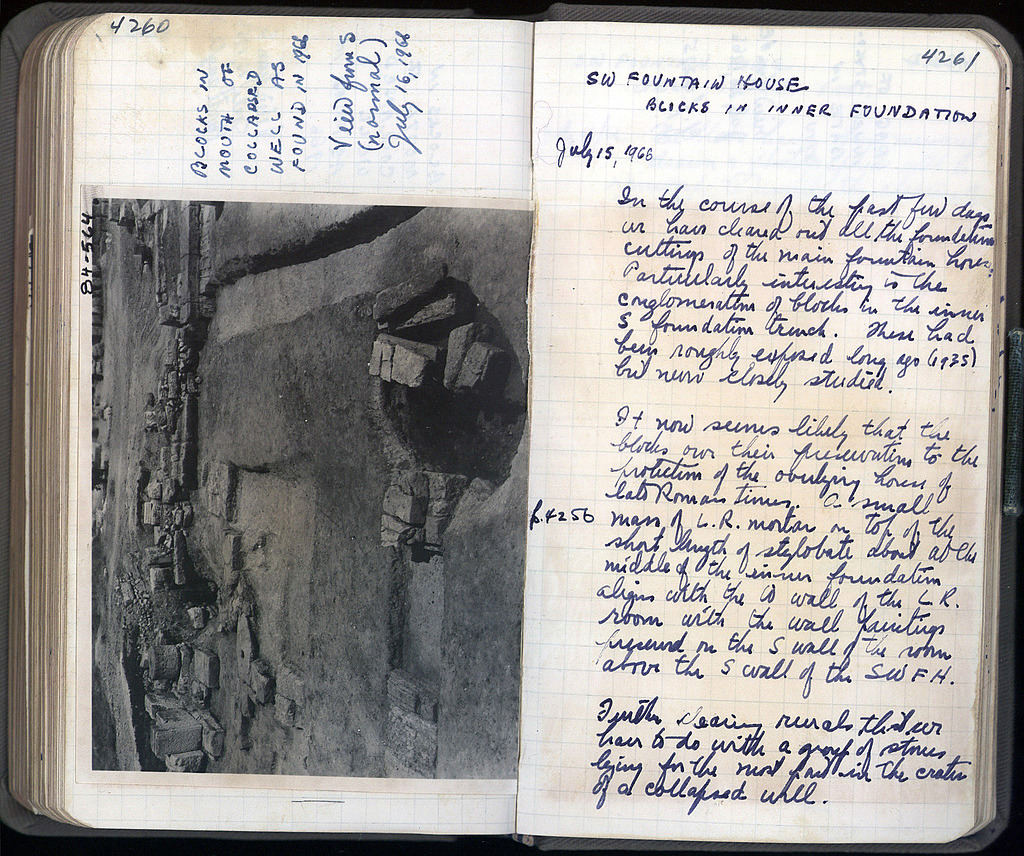 4260
BLOCKS IN
MOUTH OF
COLLAPSED
WELL AS
FOUND IN 1966
View from S
(normal)
July 16, 1966
84-564
4261
SW FOUNTAIN HOUSE
BLOCKS IN INNER FOUNDATION
July 15, 1966
In the course of the past few days
we have cleared out all the foundation
cuttings of the main fountain house.
Particularly interesting is the
conglomeration of blocks in the inner
S foundation trench. These had
been roughly exposed long ago (1935)
but now closely studied.
It now seems likely that the
blocks owe their preservation to the
protection of the overlying house of
late Roman times. A small
p. 4256 mass of L.R. mortar on top of the
short length of stylobate about at the
middle of the inner foundation
aligns with the W wall of the L.R.
room with the wall paintings
preserved on the S wall of the room
above the S wall of the SWFH.
Further clearing reveals that we
have to do with a group of stones
lying for the most part in the crater
of a collapsed well.